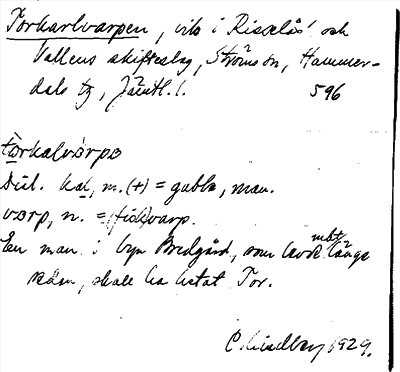 Torkarlvarpen, vik i Risselås och
Vallens skifteslag, Ströms sn, Hammer-
dals tg, Jämtl. l. 596
tòrkalvàrpɘ
Dial. kal, m. (+) = gubbe, man.
varp, n. = (fisk)varp.
En man i byn Bredgård, som levde mkt länge
sedan, skall ha hetat Tor.
C. Lindberg 1929.